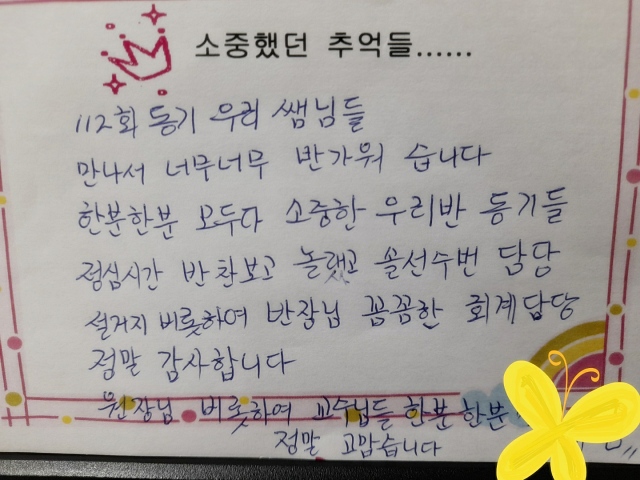 소중했던 추억들......
112회 동기 우리 쌤님들
만나서 너무너무 반가워 습니다
한분한분 모두다 소중한 우리반 동기들
점심시간 반찬보고 놀랬고 솔선수번 담당
설거지 비롯하여 반장님 꼼꼼한 회계담당
정말 감사합니다
원장님 비롯하여 교수님들 한분 한분
정말 고맙습니다